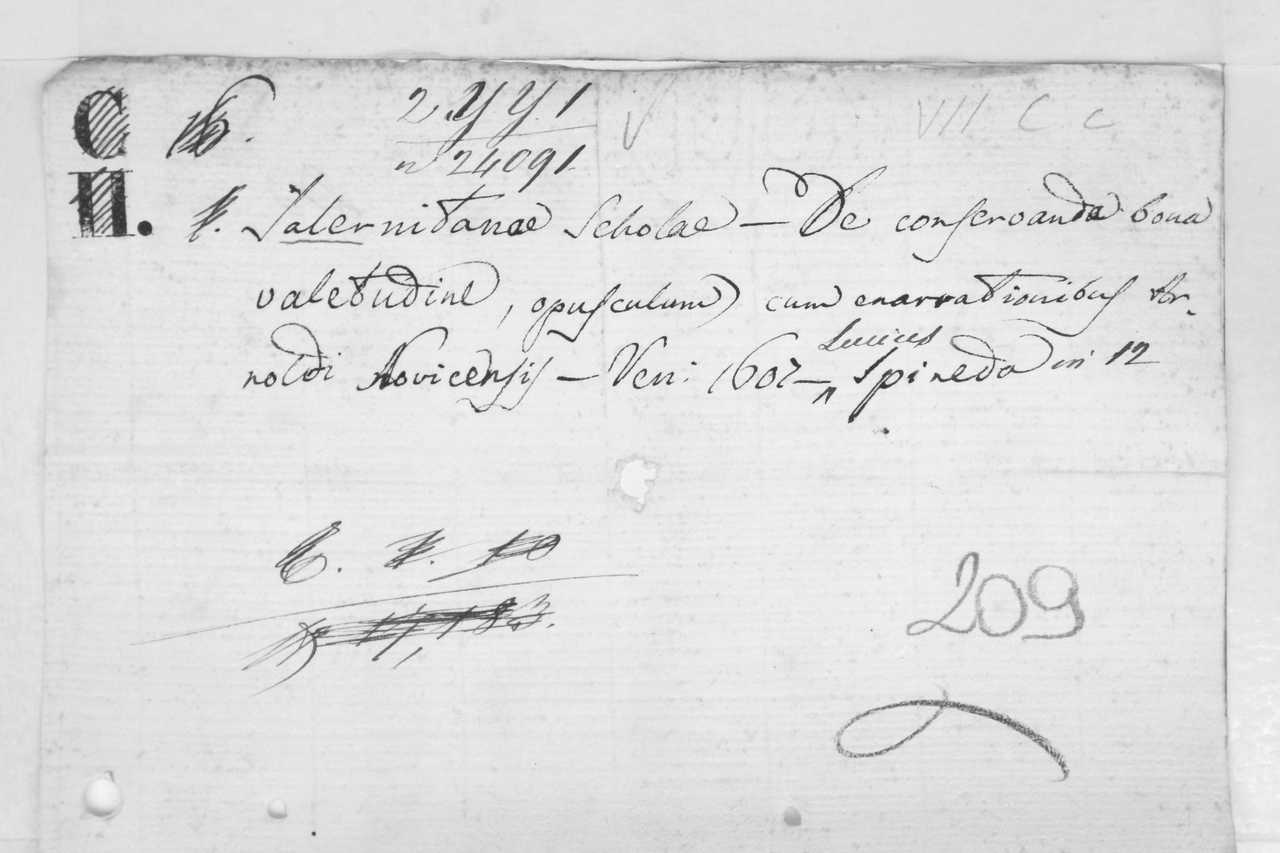 C 2.YY.1 VII C c
П. n 24091.
Salernitanae Scholae — De conservanda bona
valetudine, opusculum cum enarrationibus Ar-
noldi Novicensis — Ven: 1607 — Lucius Spineda in 12
209